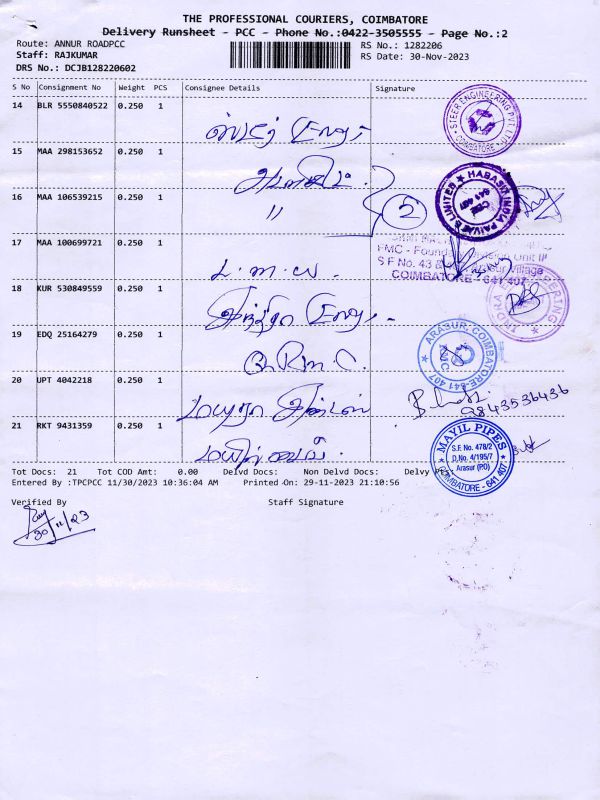 THE PROFESSIONAL COURIERS, COIMBATORE
Delivery Runsheet - PCC - Phone No.:0422-3505555 - Page No.:2
Route: ANNUR ROADPCC
RS No.: 1282206
Staff: RAJKUMAR
RS Date: 30-Nov-2023
DRS No.: DCJB128220602
S No Consignment No Weight PCS Consignee Details Signature
14 BLR 5550840522 0.250 1
STEER ENGINEERING PVT LTD COIMBATORE
15 MAA 298153652 0.250 1
16 MAA 106539215 0.250 1
〃 2
HABASIT INDIA PRIVATE LIMITED CBE 641 407
17 MAA 100699721 0.250 1
L. m. w.
FMC - Foundry Unit II
S F No. 43 Village
COIMBATORE - 641 407
18 KUR 530849559 0.250 1
19 EDQ 25164279 0.250 1
ARASUR, COIMBATORE-641 407
20 UPT 4042218 0.250 1
9843536436
21 RKT 9431359 0.250 1
MAYIL PIPES
S.F. No. 478/2
D.No. 4/195/7
Arasur (PO)
COIMBATORE - 641 407
Tot Docs: 21 Tot COD Amt: 0.00 Delvd Docs: Non Delvd Docs: Delvy
Entered By :TPCPCC 11/30/2023 10:36:04 AM Printed On: 29-11-2023 21:10:56
Verified By Staff Signature
30/11/23